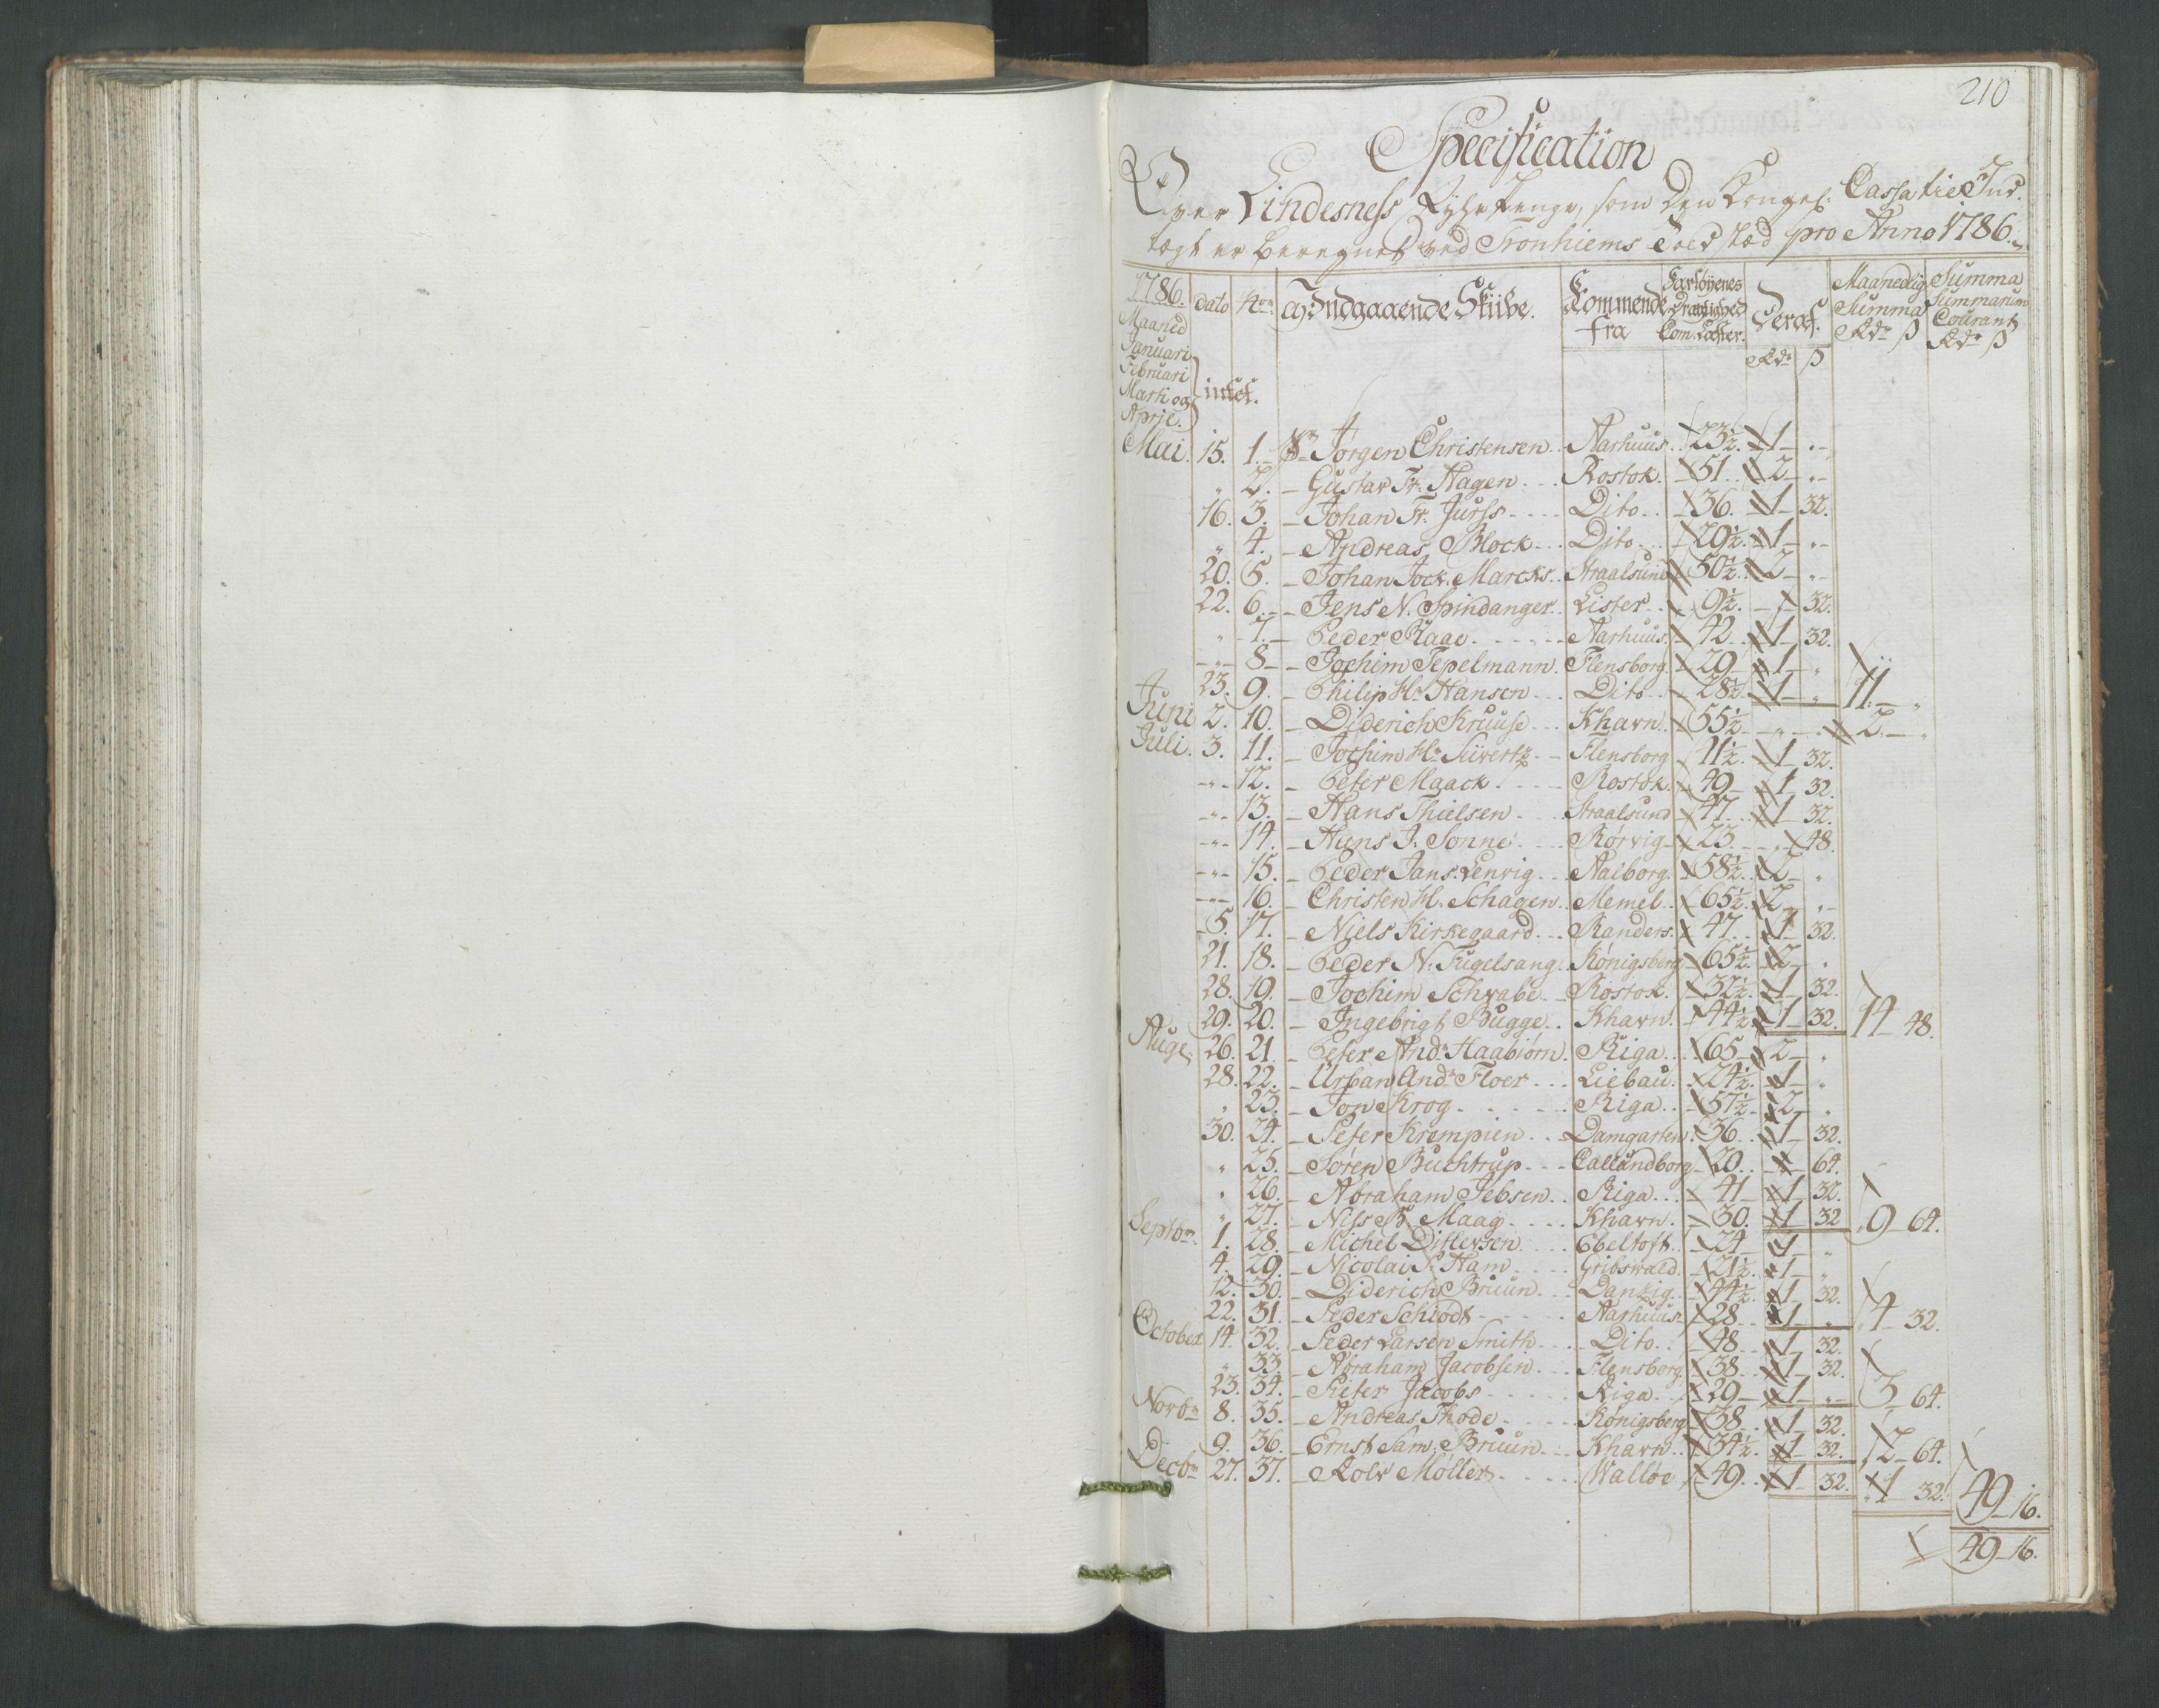 210
Specification
Over Lindesness Fyhr Penge, som Den Kongel. Cassa til Ind.
tægt er beregnet ved Tronhiems Toldsted pro Anno 1786.
1786. dato No. a, Indgaaende Skiibe. Kommende fra Fartöyenes Drægtighed Com. Læster. Deraf. Rdr ß Maanedlig Summa Rdr ß Summa Summarum Courant Rdr ß
Maaned
Januari
Februari
Marti og
Apriil.
intet.
Mai. 15. 1. Sr Jørgen Christensen Aarhuus 23½. 1 "
" 2. Gustav Fr: Hagen Rostok. 51 2 "
16. 3. Johan Fr. Jurss Dito 36. 1 32.
" 4. Andreas Block Dito 29½. 1 "
20. 5. Johan Jock. Marcks Straalsund 50½. 2 "
22. 6. Jens N. Spindanger Lister 9½. " 32.
" 7. Peder Raae Aarhuus. 42 1 32.
" 8 Jochim Tepelmann. Flensborg. 29 1 "
23. 9. Philip Hr Hansen Dito 28½ 1 " 11. "
Juni 2. 10. Diderich Kruuse Khavn. 55½ " " 2. "
Juli. 3. 11. Jochim Hr Siivertz Flensborg 41½. 1 32.
" 12. Peter Maack. Rostok. 49 1 32.
" 13. Hans Thielsen Straalsund 47 1 32.
" 14. Hans J. Sonne Rørvig 23 " 48.
" 15. Peder Jans. Lenvig Aalborg. 58½ 2 "
" 16. Christen H. Schagen Memel 65½. 2 "
5. 17. Niels Kirkegaard Randers. 47. 1 32.
21. 18. Peder N. Fugelsang Königsberg 65½. 2 "
28. 19. Jochim Schvabe Rostok. 32½. 1 32.
29. 20. Ingebrigt Bugge Khavn. 44½. 1 32. 14 48.
Auge. 26. 21. Peter Andr Haabiörn. Riga 65 2 "
28. 22. Urban Andr Floer Liebau. 24½. 1 "
" 23. Jon Krog Riga 57½. 2 "
30. 24. Peter Krempien Damgarten. 36 1 32.
" 25. Søren Buchtrup Callundborg 20 " 64.
" 26. Abraham Jebsen Riga 41 1 32.
" 27. Niss B. Maag Khavn. 30. 1 32 9 64.
Septbr. 1. 28. Michel Ditlevsen Ebeltoft 24 1 "
4. 29. Nicolai S. Ham Gribswald. 21½. 1 "
12. 30. Diderich Bruun Danzig 44½. 1 32.
22. 31. Peder Schiødt Aarhuus 28 1 " 4 32.
October 14. 32. Peder Larsen Smith Dito. 48 1 32.
" 33. Abraham Jacobsen Flensborg 38 1 32.
23. 34. Peter Jacobs Riga 29 1 " 3 64.
Novbr 8. 35. Andreas Thode Königsberg 38 1 32.
9. 36. Ernst Sam. Bruun Khavn. 34½. 1 32. 2 64.
Decbr 27. 37. Rolv Møller Walløe 49. 1 32. 1 32. 49 16.
49 16.